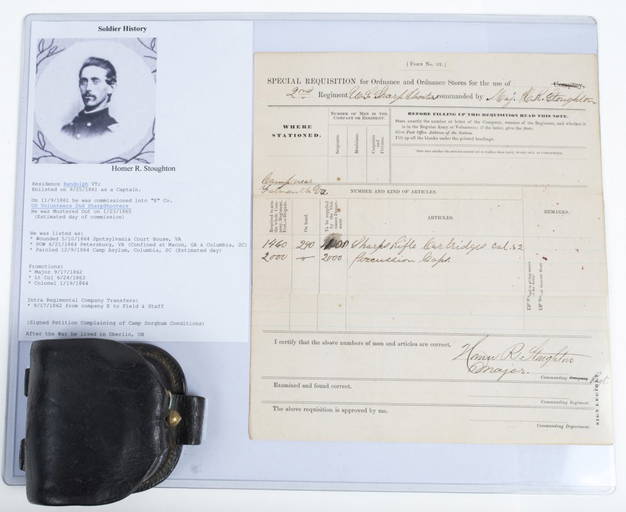 Soldier History
Homer R. Stoughton
Residence Randolph VT;
Enlisted on 9/25/1861 as a Captain.
On 11/9/1861 he was commissioned into "E" Co.
US Volunteers 2nd Sharpshooters
He was Mustered Out on 1/23/1865
(Estimated day of commission)
He was listed as:
* Wounded 5/10/1864 Spotsylvania Court House, VA
* POW 6/21/1864 Petersburg, VA (Confined at Macon, GA & Columbia, SC)
* Paroled 12/9/1864 Camp Asylum, Columbia, SC (Estimated day)
Promotions:
* Major 9/17/1862
* Lt Col 6/24/1863
* Colonel 1/19/1864
Intra Regimental Company Transfers:
* 9/17/1862 from company E to Field & Staff
(Signed Petition Complaining of Camp Sorghum Conditions)
After the War he lived in Oberlin, OH
[ FORM No. 21. ]
SPECIAL REQUISITION for Ordnance and Ordnance Stores for the use of Company,
2nd Regiment U.S. Sharp Shooters commanded by Maj. H. R. Stoughton
WHERE STATIONED.
NUMBER OF MEN IN THE COMPANY OR REGIMENT.
Sergeants.
Musicians.
BEFORE FILLING UP THIS REQUISITION READ THIS NOTE.
Camp near
NUMBER AND KIND OF ARTICLES.
On hand.
ARTICLES.
REMARKS.
1960 290 Sharps Rifle Cartridges Cal. 52
2000 2000 Percussion Caps.
I certify that the above numbers of men and articles are correct.
Homer R. Stoughton
Major.
Commanding Company
Examined and found correct.
Commanding Regiment
The above requisition is approved by me.
Commanding Department.